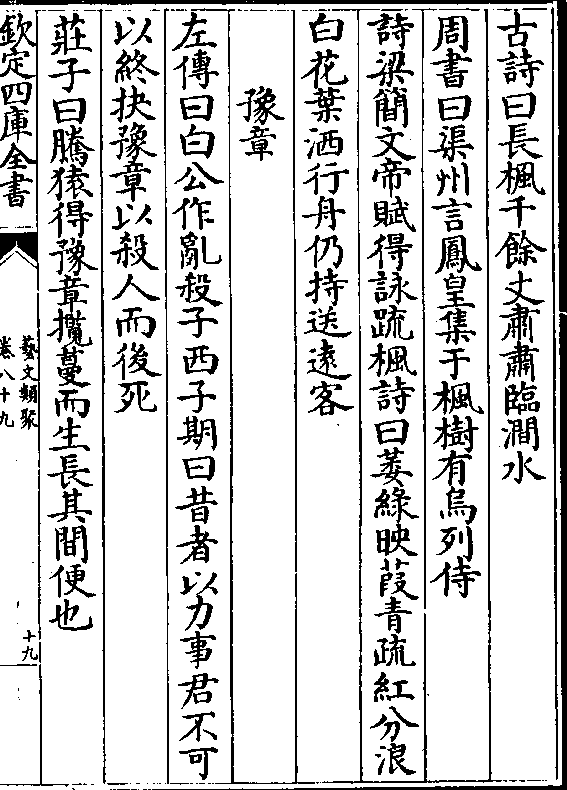 古詩曰長楓千餘丈肅肅臨澗水
周書曰渠州言鳳皇集于楓樹有烏列侍
詩梁簡文帝賦得詠疏楓詩曰萎綠映葭青疏紅分浪
白花葉洒行舟仍持送遠客
豫章
左傳曰白公作亂殺子西子期曰昔者以力事君不可
以終抉豫章以殺人而後死
莊子曰騰猿得豫章攬蔓而生長其間便也
欽定四庫全書
藝文類聚
卷八十九
十九